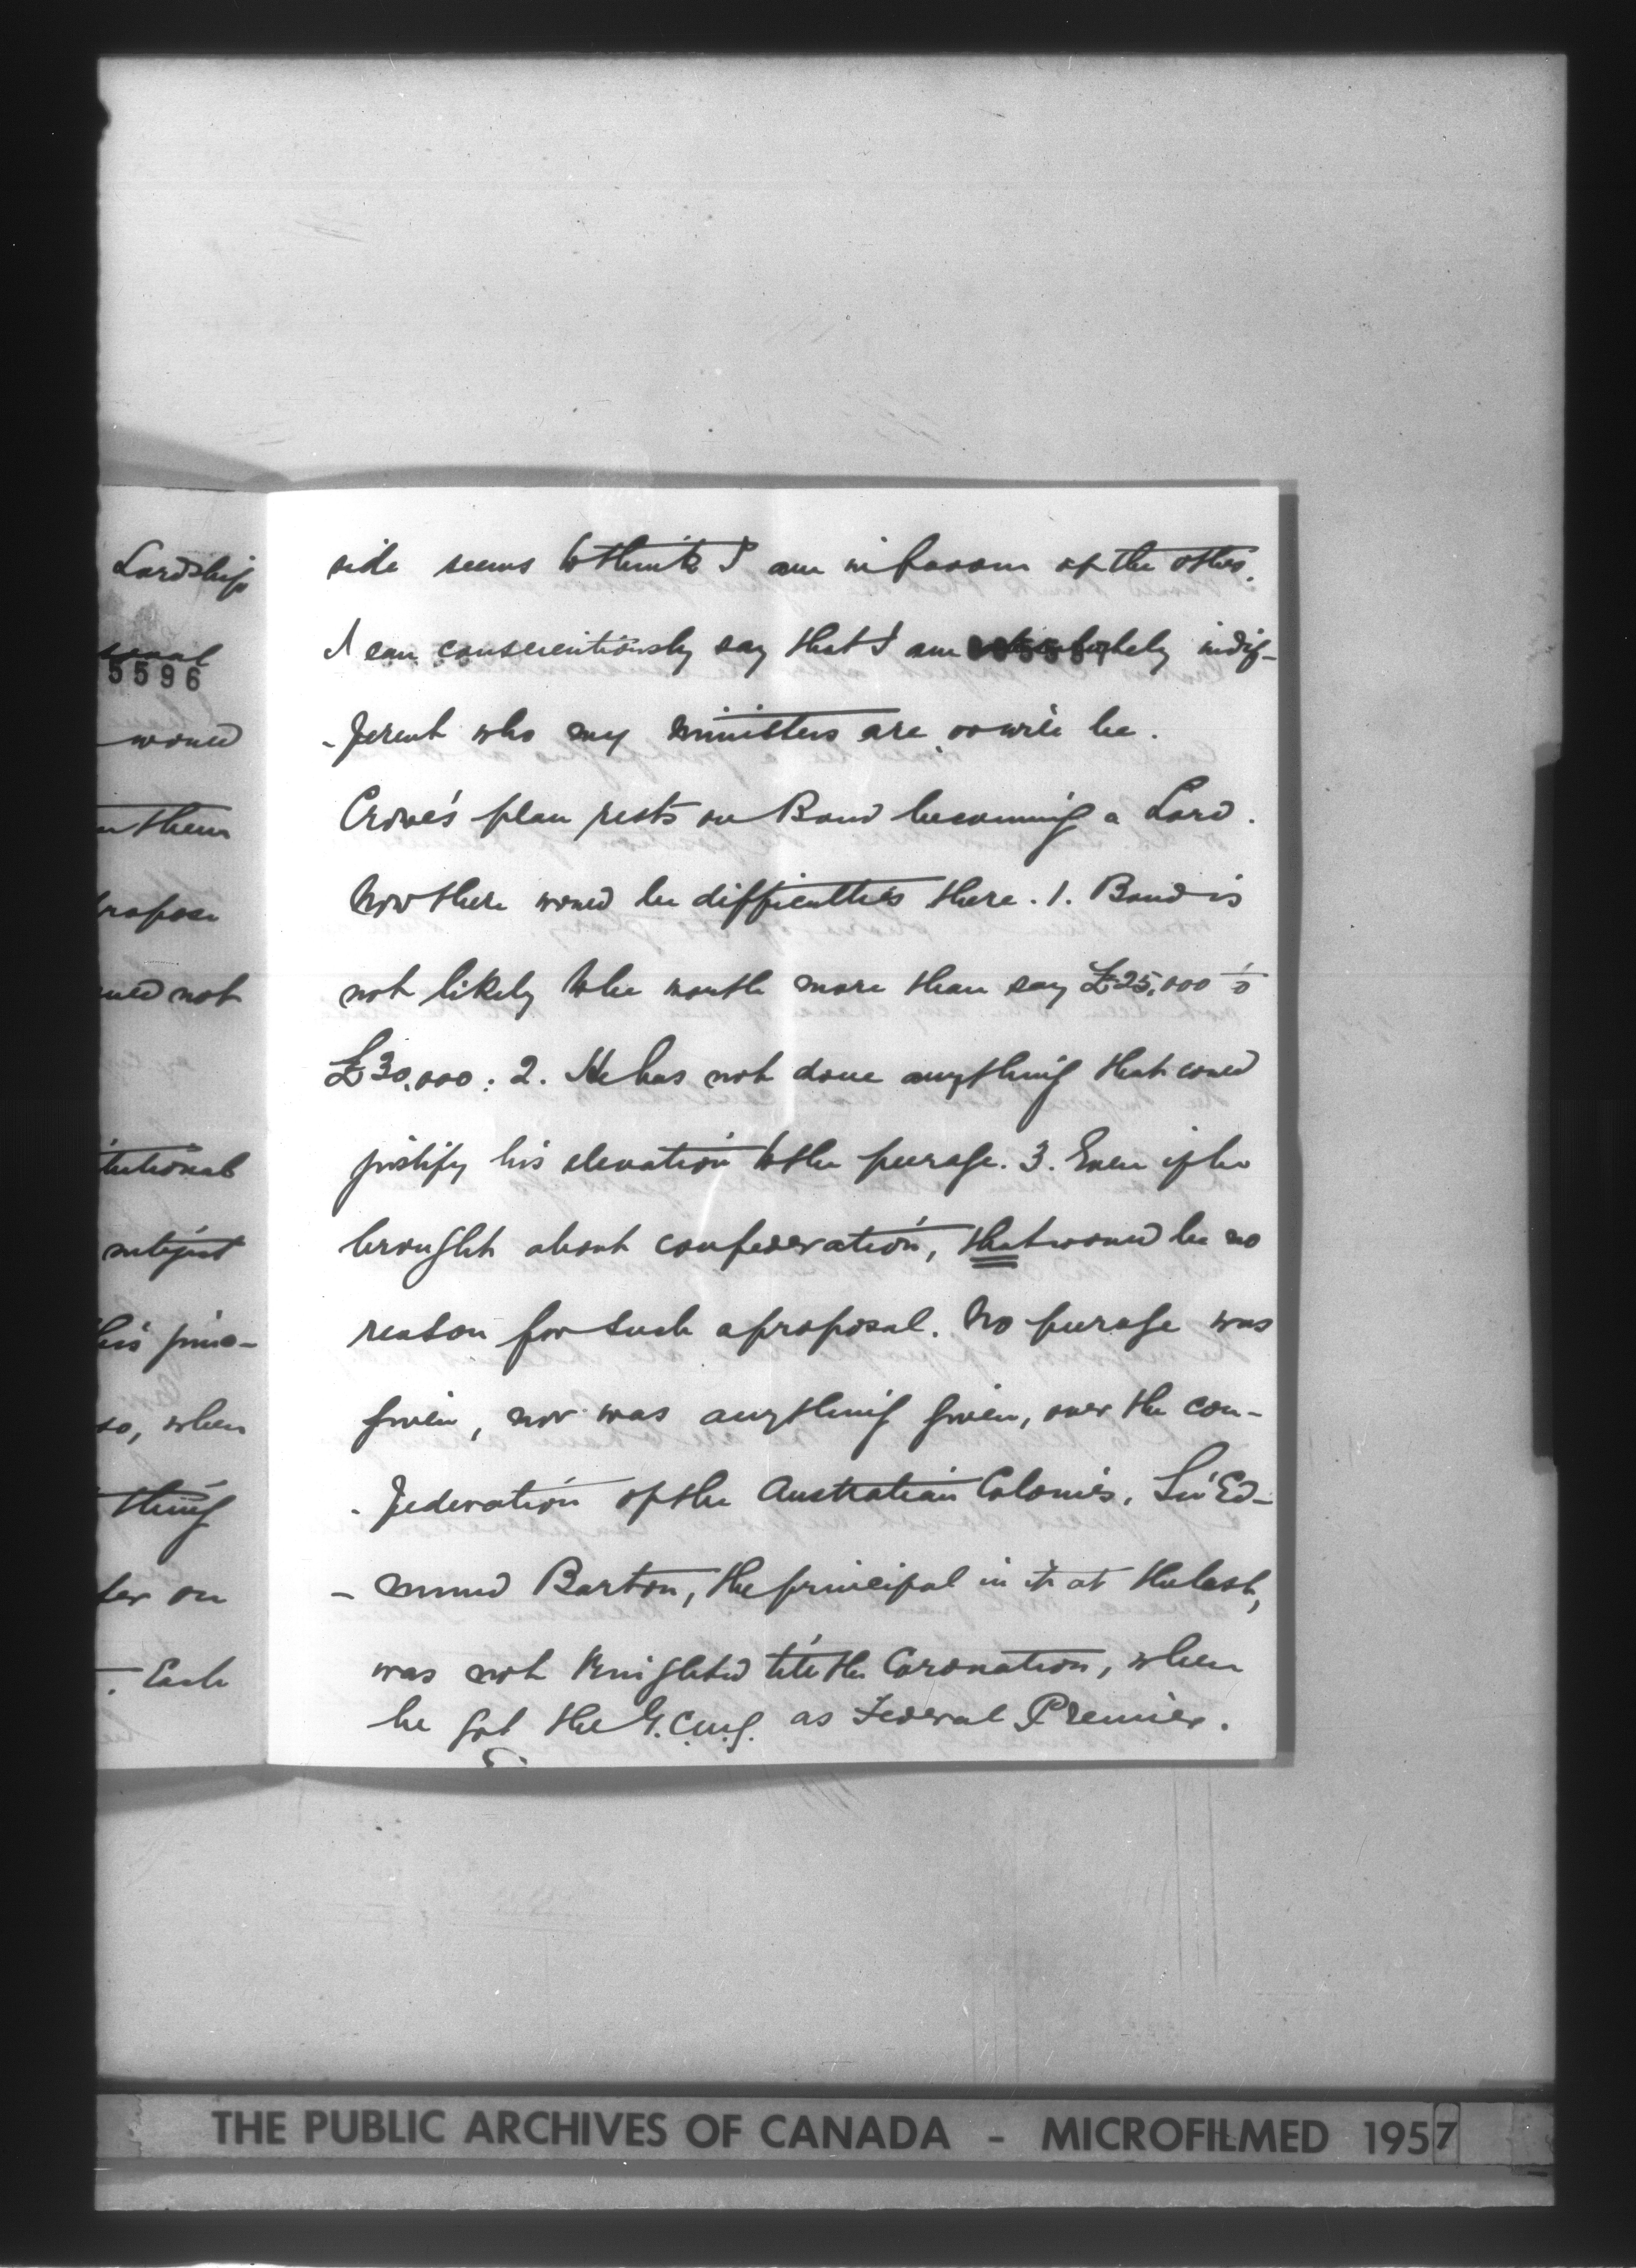 Lordship
5596
would
them
propose
not
tutional
subject
his
so, when
thing
on
. Each
side seems to think I am in favour of the other.
I can conscientiously say that I am absolutely indif-
-ferent who my ministers are or will be.
Crowe's plan rests on Bond becoming a Lord.
Now there would be difficulties there. 1. Bond is
not likely to be worth more than say £25,000 to
£30,000: 2. He has not done anything that could
justify his elevation to the peerage. 3. Even if he
brought about confederation, that would be no
reason for such a proposal. No peerage was
given, nor was anything given, over the con-
-federation of the Australian Colonies. Sir Ed-
-mund Barton, the principal in it at the last,
was not knighted till the Coronation, when
he got the G.C.M.G. as Federal Premier.
THE PUBLIC ARCHIVES OF CANADA - MICROFILMED 1957